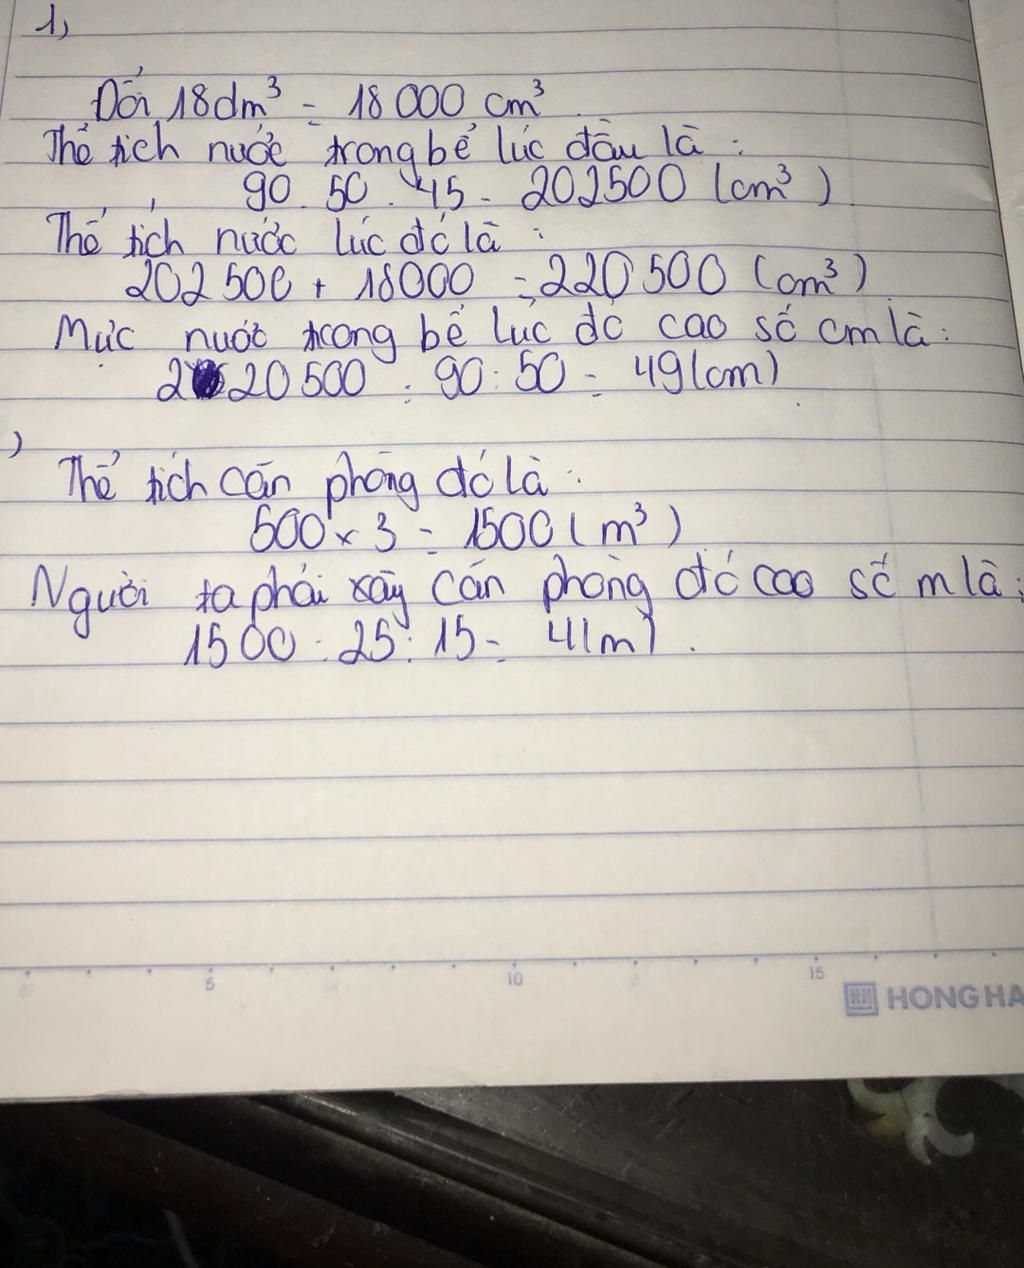 1,
Đổi 18dm³ = 18000 cm³
Thể tích nước trong bể lúc đầu là :
90 . 50 . 45 = 202500 (cm³)
Thể tích nước lúc đó là :
202500 + 18000 = 220500 (cm³)
Mực nước trong bể lúc đó cao số cm là :
220500 : 90 : 50 = 49(cm)
)
Thể tích căn phòng đó là :
500 x 3 = 1500 (m³)
Người ta phải xây căn phòng đó cao số m là :
1500 : 25 : 15 = 4(m) .
5 10 15
HONG HA